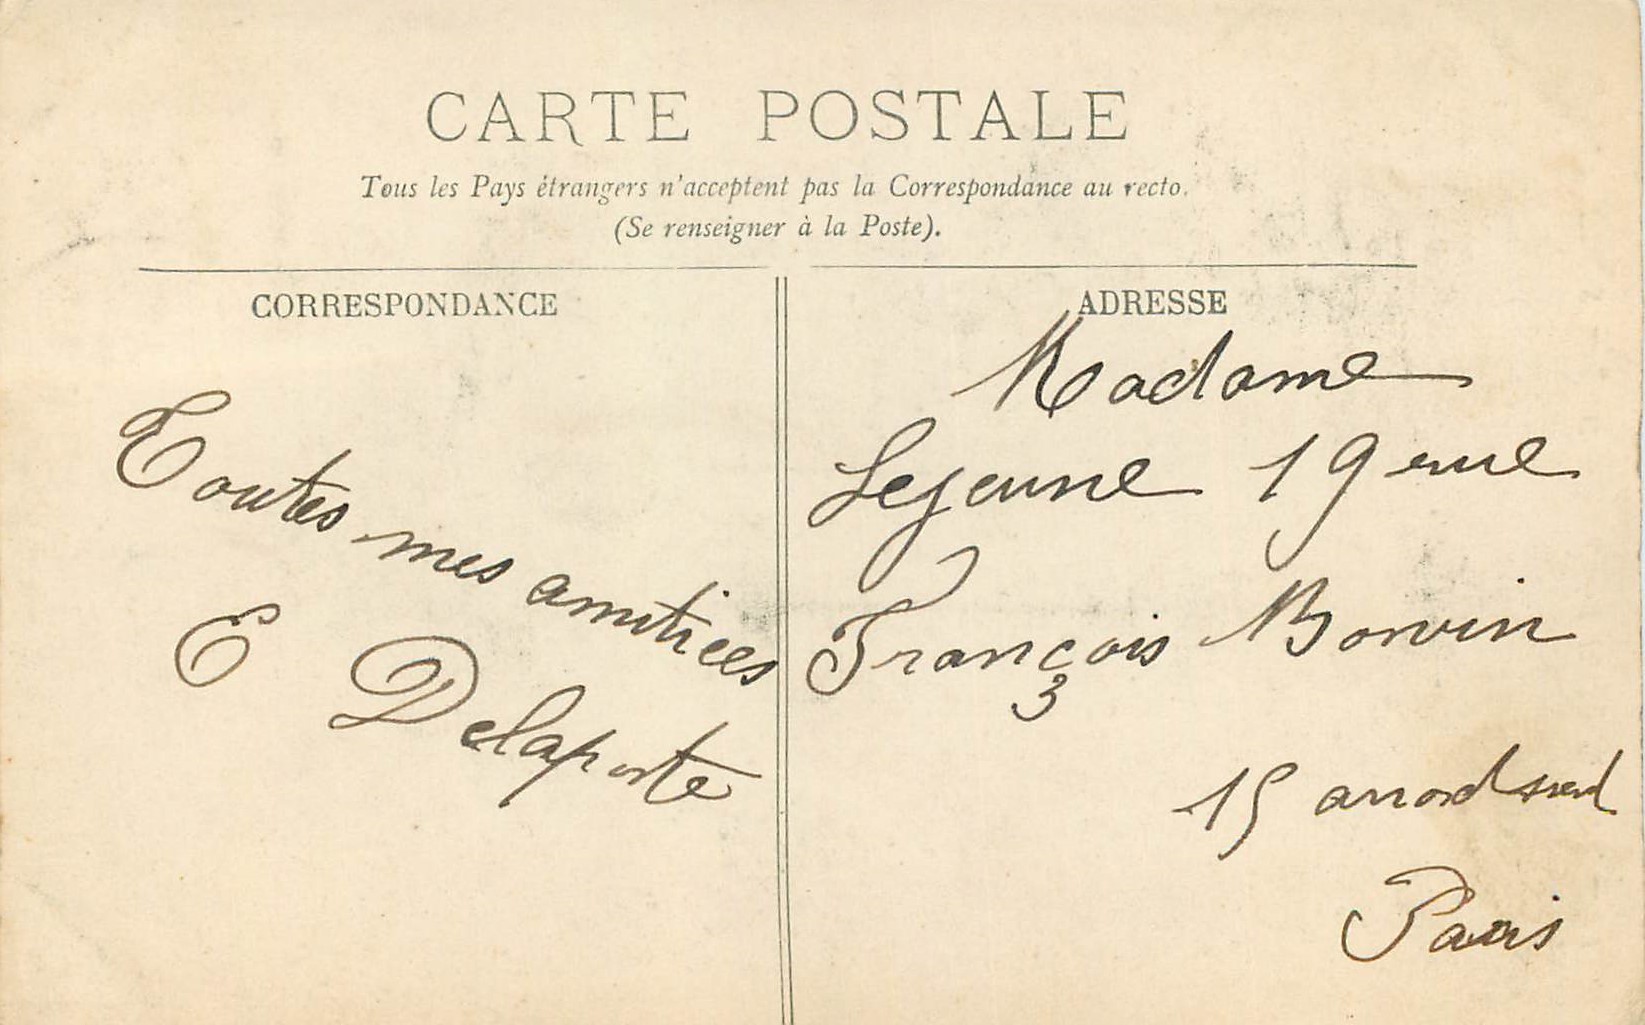 CARTE POSTALE
Tous les Pays étrangers n'acceptent pas la Correspondance au recto.
(Se renseigner à la Poste).
CORRESPONDANCE
Toutes mes amitiées
E Delaporte
ADRESSE
Madame
Lejeune 19 rue
François Bonvin
15 arrond
Paris